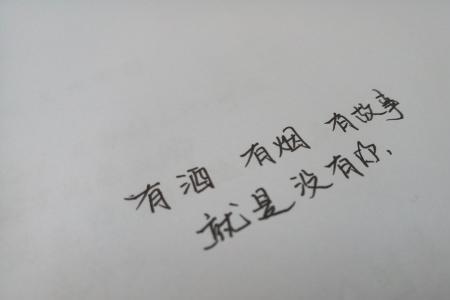 有酒 有烟 有故事
就是没有你、